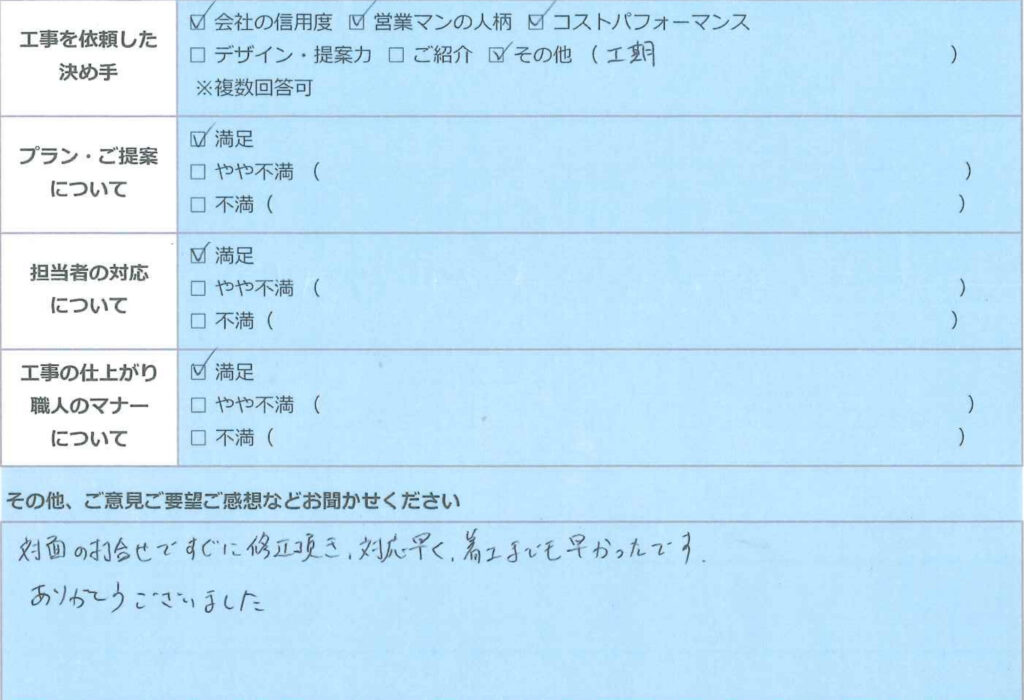 工事を依頼した
決め手
☑ 会社の信用度 ☑ 営業マンの人柄 ☑ コストパフォーマンス
□ デザイン・提案力 □ ご紹介 ☑ その他 ( 工期 )
※複数回答可
プラン・ご提案
について
☑ 満足
□ やや不満 ( )
□ 不満 ( )
担当者の対応
について
☑ 満足
□ やや不満 ( )
□ 不満 ( )
工事の仕上がり
職人のマナー
について
☑ 満足
□ やや不満 ( )
□ 不満 ( )
その他、ご意見ご要望ご感想などお聞かせください
対面の打合せですぐに修正頂き、対応早く、着工までも早かったです.
ありがとうございました